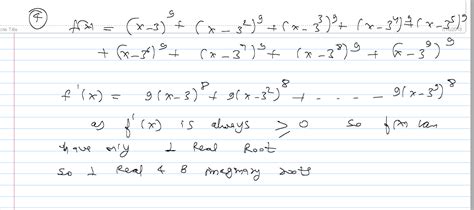 ④ f(x) = (x-3)⁹ + (x-3²)⁹ + (x-3³)⁹ + (x-3⁴)⁹ + (x-3⁵)⁹
+ (x-3⁶)⁹ + (x-3⁷)⁹ + (x-3⁸)⁹ + (x-3⁹)⁹
f'(x) = 9(x-3)⁸ + 9(x-3²)⁸ + - . - - - 9(x-3⁹)⁸
as f'(x) is always ≥ 0 so f(x) can
have only 1 real Root
So 1 Real & 8 imaginary roots